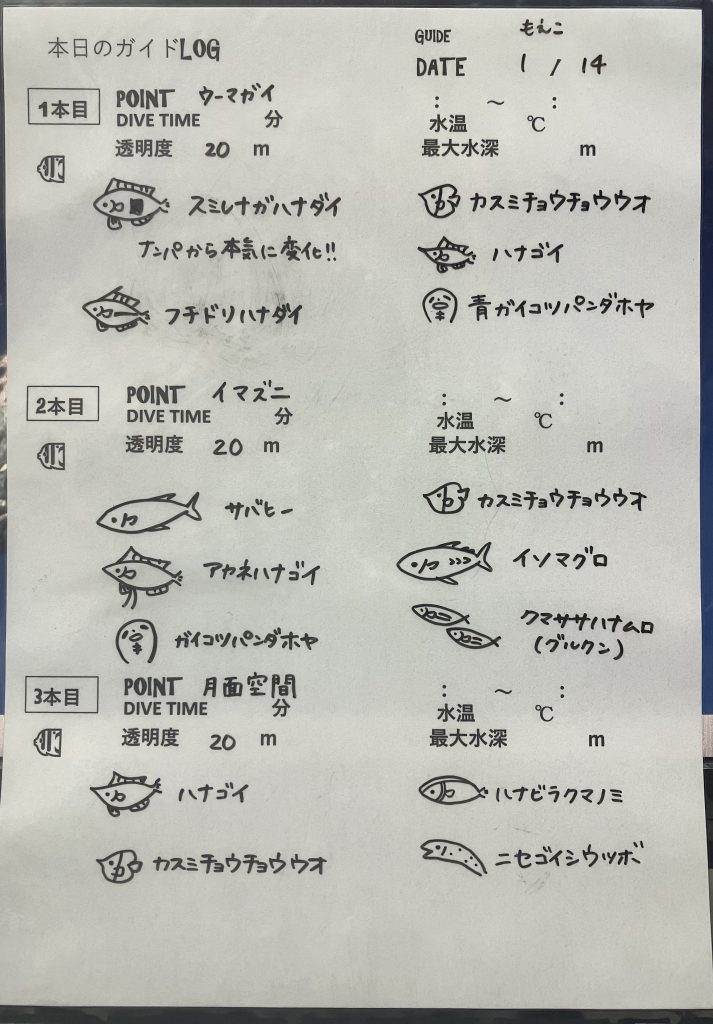 本日のガイドLOG
GUIDE もえこ
DATE 1 / 14
1本目
POINT ウーマガイ
DIVE TIME 分
透明度 20 m
: ～ :
水温 ℃
最大水深 m
スミレナガハナダイ
ナンパから本気に変化!!
フチドリハナダイ
カスミチョウチョウウオ
ハナゴイ
青ガイコツパンダホヤ
2本目
POINT イマズニ
DIVE TIME 分
透明度 20 m
: ～ :
水温 ℃
最大水深 m
サバヒー
アヤネハナゴイ
ガイコツパンダホヤ
カスミチョウチョウウオ
イソマグロ
クマササハナムロ
(グルクン)
3本目
POINT 月面空間
DIVE TIME 分
透明度 20 m
: ～ :
水温 ℃
最大水深 m
ハナゴイ
カスミチョウチョウウオ
ハナビラクマノミ
ニセゴイシウツボ